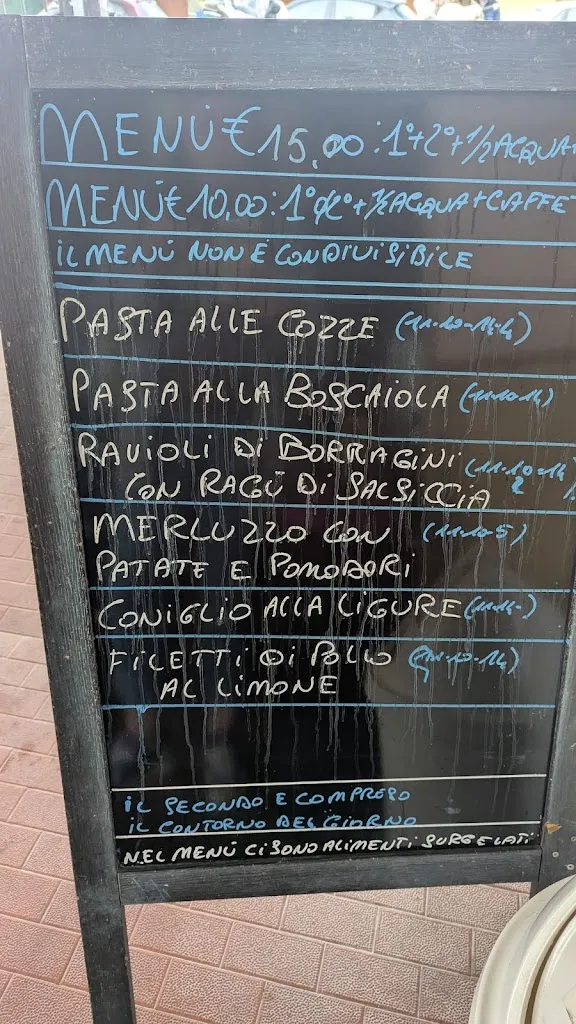 MENÙ €15,00: 1°+2°+1/2 ACQUA+
MENÙ €10,00: 1° o 2°+1/2 ACQUA+CAFFE
IL MENÙ NON È CONDIVISIBILE
PASTA ALLE COZZE (11-10-14-4)
PASTA ALLA BOSCAIOLA (11-10-14)
RAVIOLI DI BORRAGINI (11-10-14
CON RAGÙ DI SALSICCIA 2
MERLUZZO CON (11-10-5)
PATATE E POMODORI
CONIGLIO ALLA LIGURE (11-14-)
FILETTI DI POLLO
AL LIMONE
IL SECONDO E COMPRESO
IL CONTORNO DEL GIORNO
NEL MENÙ CI SONO ALIMENTI SURGELATI